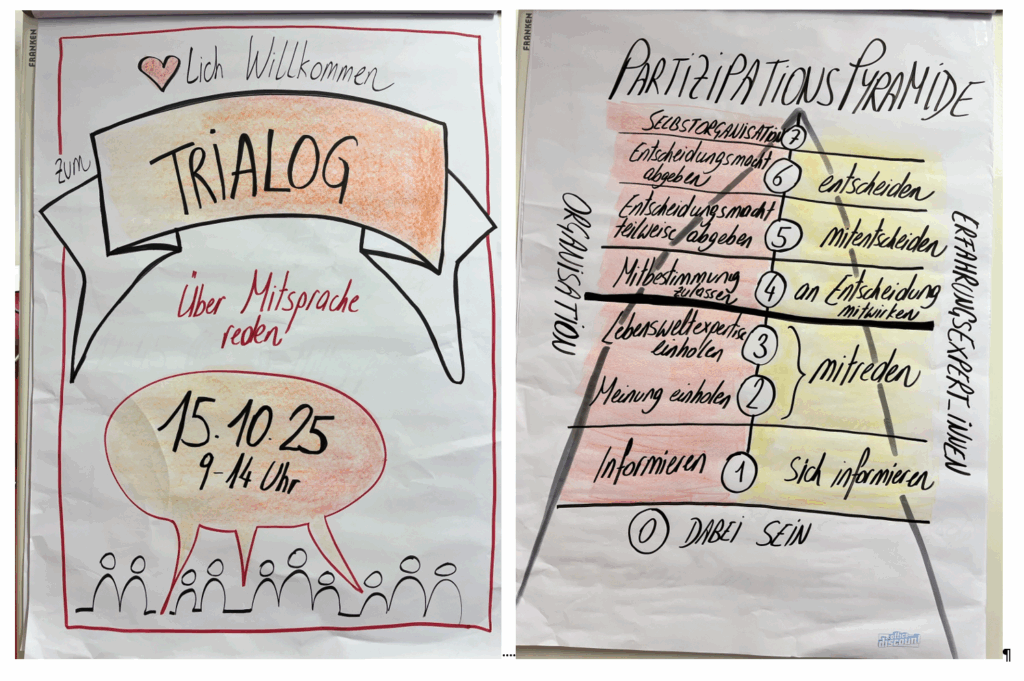 FRANKEN
Lich Willkommen
zum
TRIALOG
Über Mitsprache
reden
15.10.25
9-14 Uhr
FRANKEN
PARTIZIPATIONSPYRAMIDE
ORGANISATION
ERFAHRUNGSEXPERT_INNEN
SELBSTORGANISATION 7
Entscheidungsmacht
abgeben 6 entscheiden
Entscheidungsmacht
teilweise abgeben 5 mitentscheiden
Mitbestimmung
zulassen 4 an Entscheidung
mitwirken
Lebensweltexpertise
einholen 3
mitreden
Meinung einholen 2
Informieren 1 sich informieren
0 DABEI SEIN
office
discount
....¶